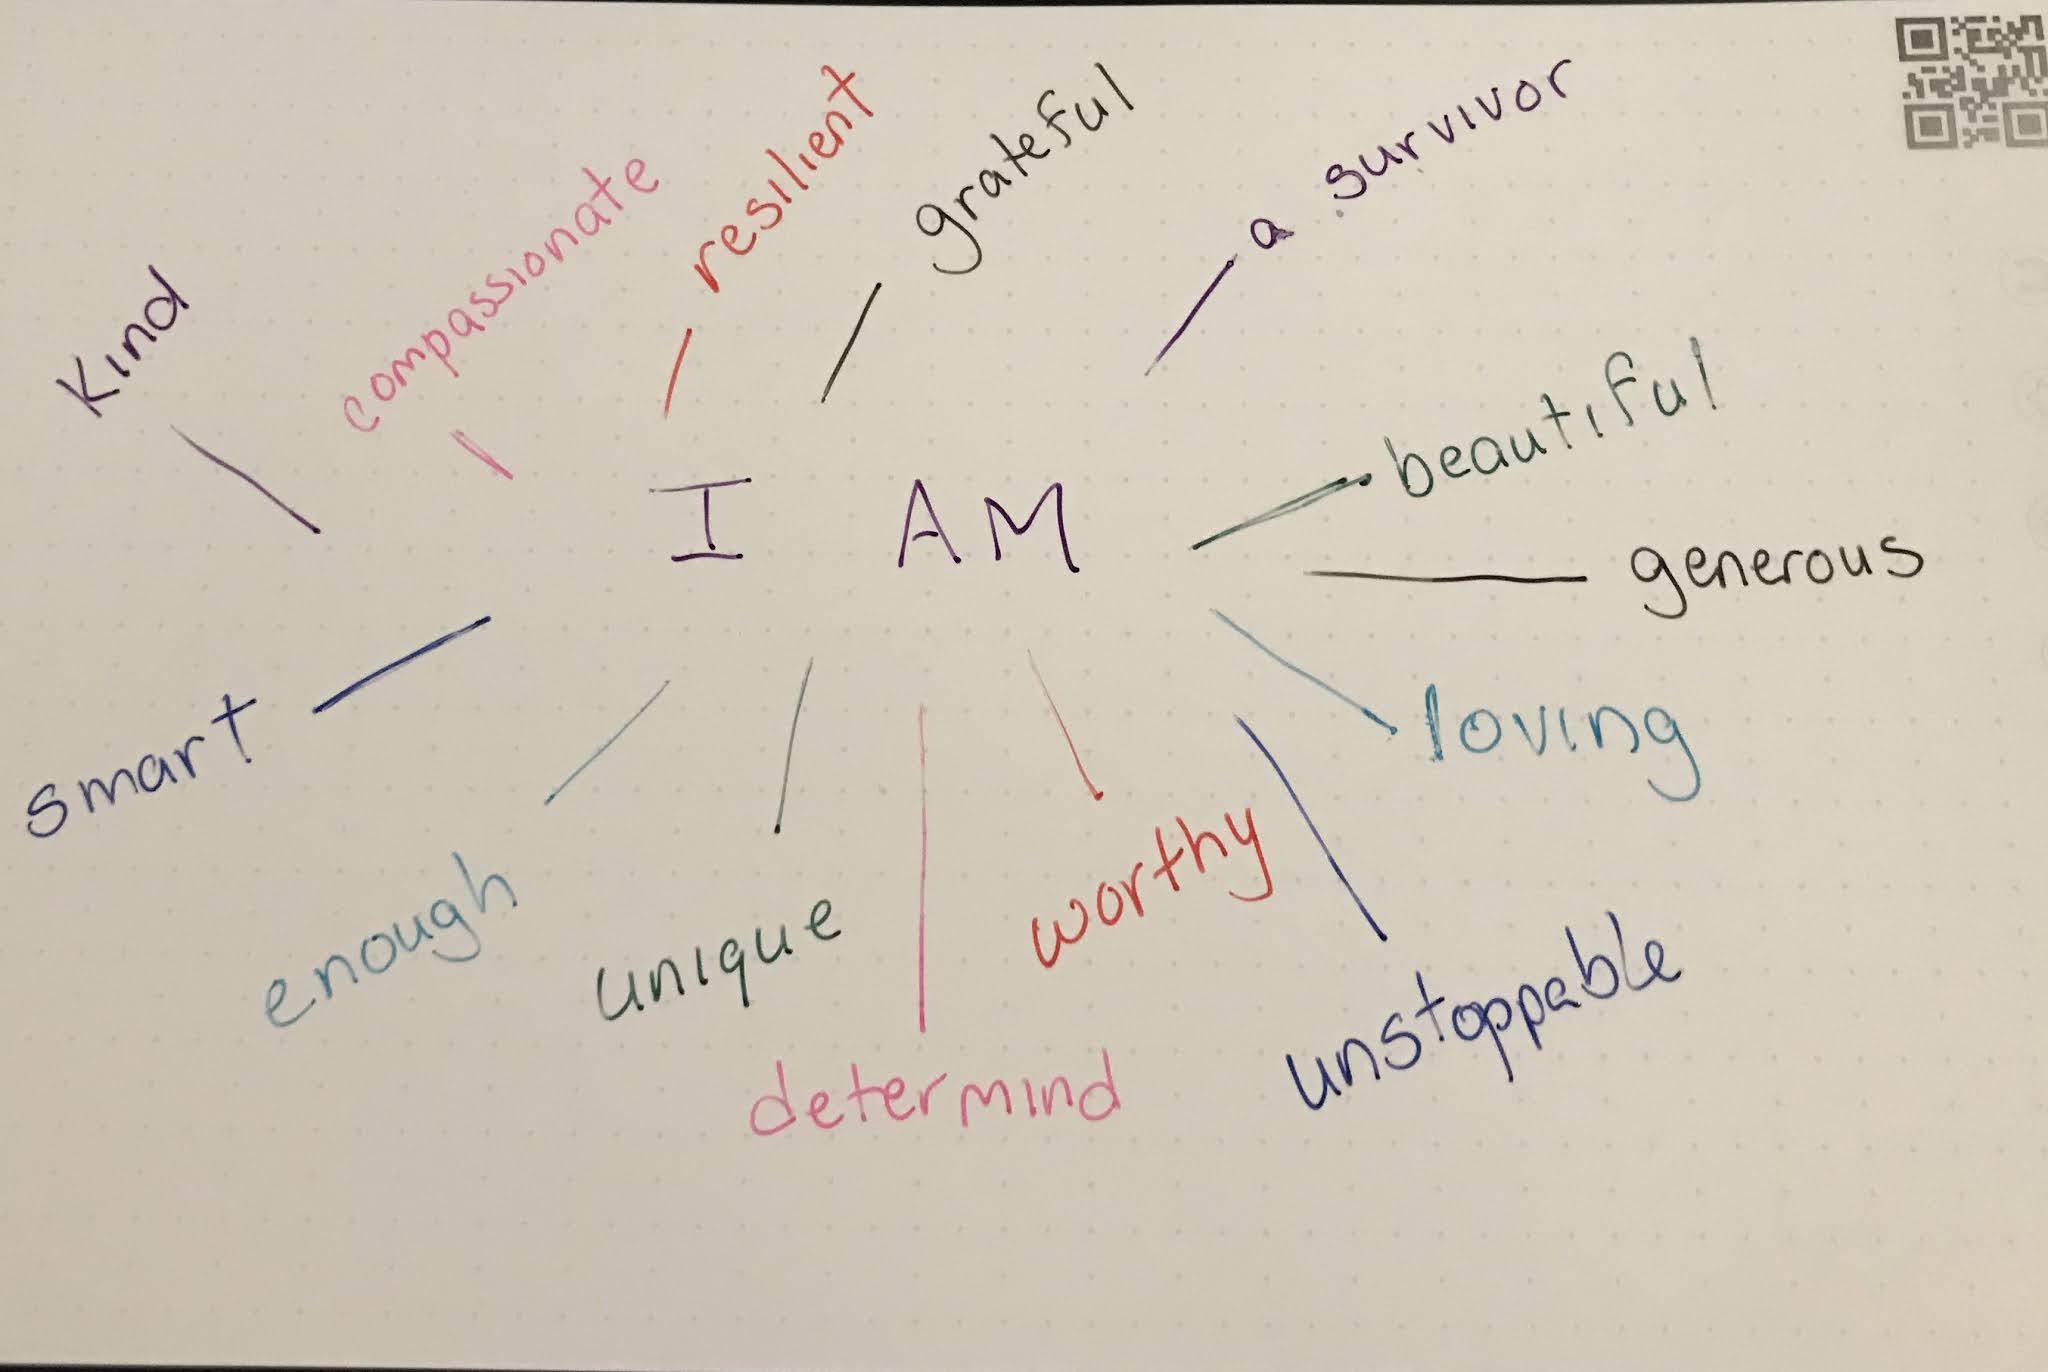 Kind
compassionate
resilient
grateful
a survivor
beautiful
I AM
generous
smart
loving
enough
unique
worthy
unstoppable
determind